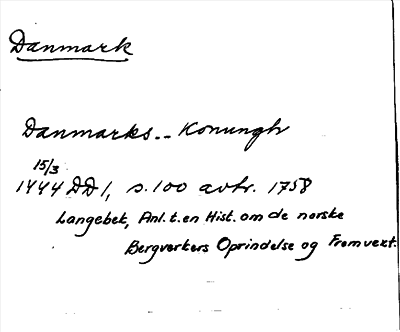 Danmark
Danmarks -- Konungh
15/3
1444 DD 1, s. 100 avtr. 1758
Langebek, Anl. t. en Hist. om de norske
Bergverkers Oprindelse og Fremvext.